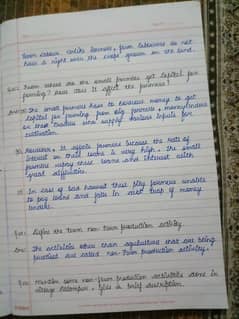 Farm labour unlike farmers, farm labourers do not
have a right over the crops grown on the land.
from where do the small farmers get capital for
farming? how does it affect the farmers?
The small farmers have to borrow money to get
capital for farming from big farmers, money lenders
or the traders who supply various inputs for
cultivation.
However, it affects farmers because the rate of
interest on such loans is very high. The small
farmers repay these loans and interest with
great difficulties.
In case of bad harvest thus they farmers unable
to pay loans and falls in debt trap of money
lenders.
Define the term non farm production activity.
The activities other than agriculture that are being
practised are called non-farm production activity.
Mention some non-farm production activities done in
village Palampur. Give a brief description.